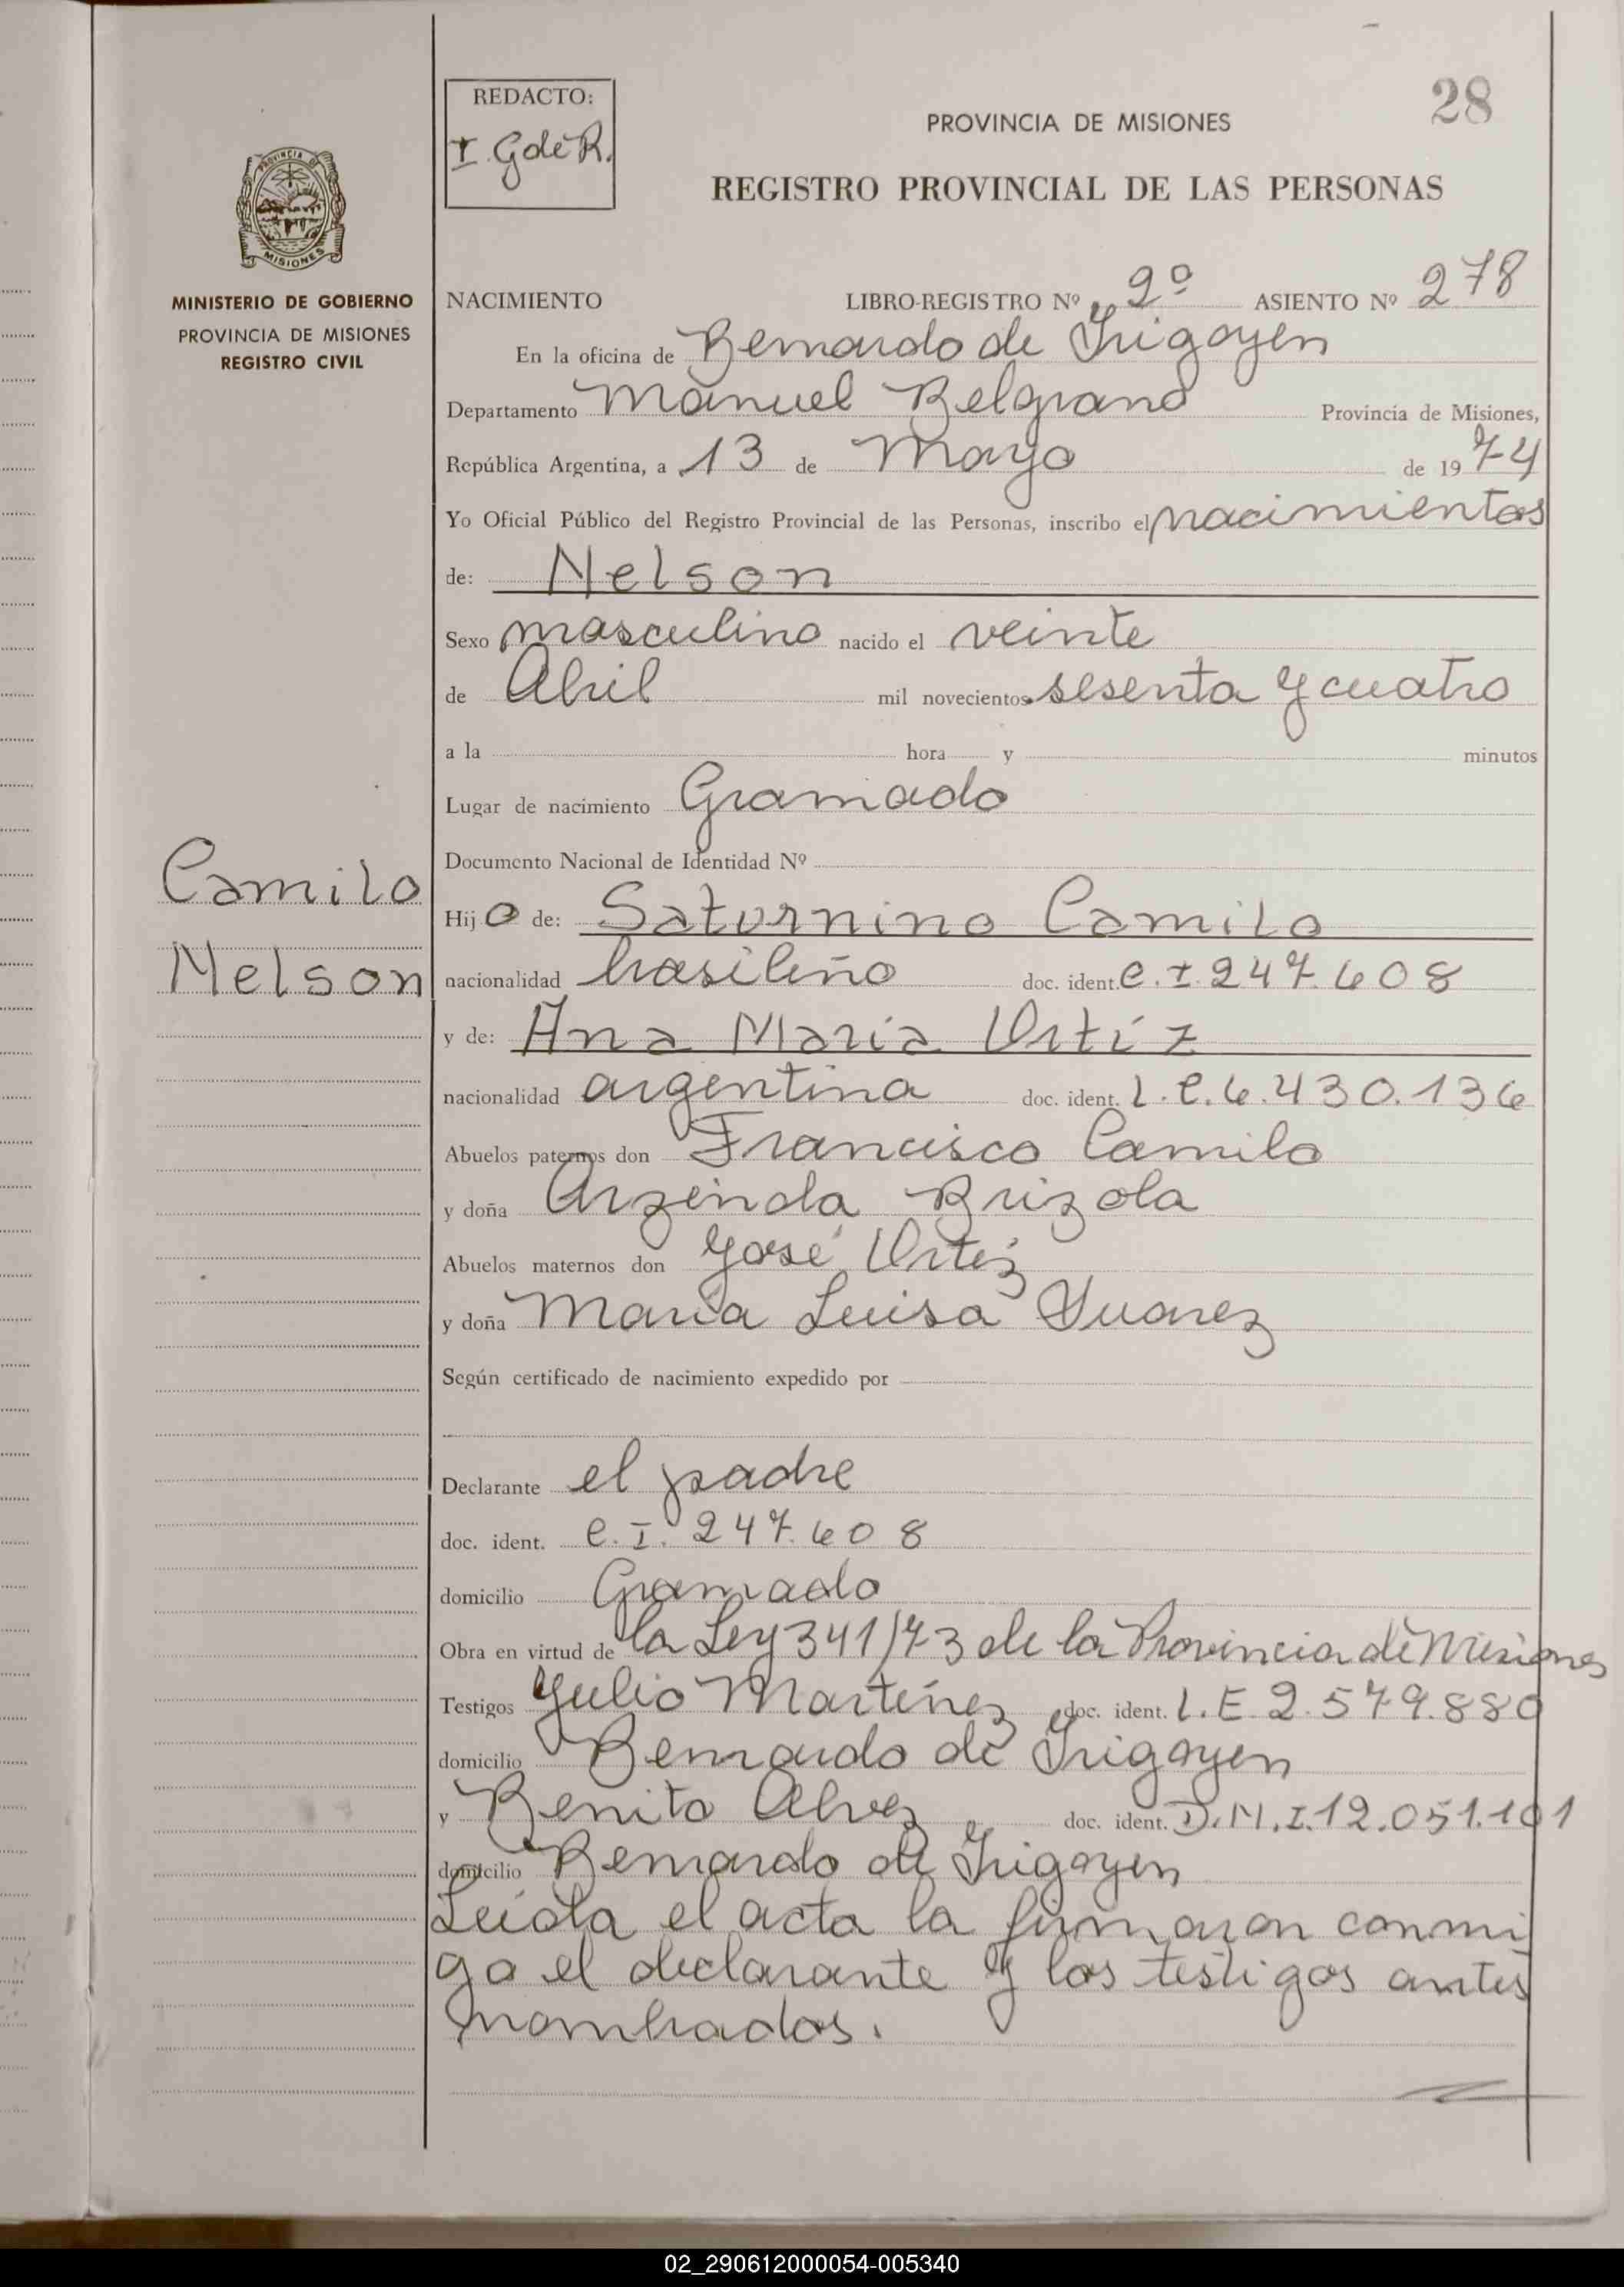 28
REDACTO:
I. G de R.
PROVINCIA DE MISIONES
REGISTRO PROVINCIAL DE LAS PERSONAS
PROVINCIA DE
MISIONES
MINISTERIO DE GOBIERNO
PROVINCIA DE MISIONES
REGISTRO CIVIL
NACIMIENTO LIBRO-REGISTRO Nº 2º ASIENTO Nº 278
En la oficina de Bernardo de Irigoyen
Departamento Manuel Belgrano Provincia de Misiones,
República Argentina, a 13 de Mayo de 1974
Yo Oficial Público del Registro Provincial de las Personas, inscribo el nacimientos
de: Nelson
Sexo masculino nacido el veinte
de Abril mil novecientos sesenta y cuatro
a la hora y minutos
Lugar de nacimiento Gramado
Documento Nacional de Identidad Nº
Camilo
Nelson
Hijo de: Saturnino Camilo
nacionalidad brasileño doc. ident. C.I. 247.608
y de: Ana Maria Ortíz
nacionalidad argentina doc. ident. L.C. 6.430.136
Abuelos paternos don Francisco Camilo
y doña Arzenda Brizola
Abuelos maternos don José Ortíz
y doña María Luisa Suarez
Según certificado de nacimiento expedido por
Declarante el padre
doc. ident. C.I. 247.608
domicilio Gramado
Obra en virtud de la Ley 341/73 de la Provincia de Misiones
Testigos Julio Martínez doc. ident. L.E 2.579.880
domicilio Bernardo de Irigoyen
y Benito Alvez doc. ident. D.N.I. 12.051.101
domicilio Bernardo de Irigoyen
Leída el acta la firmaron conmi
go el declarante y los testigos antes
nombrados.
02_290612000054-005340